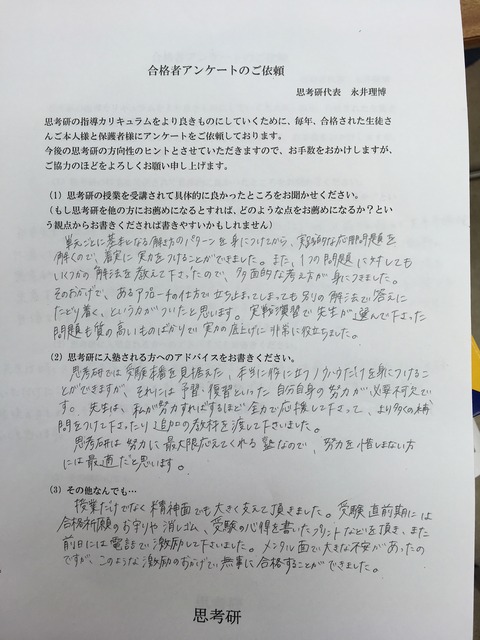 合格者アンケートのご依頼
思考研代表 永井理博
思考研の指導カリキュラムをより良きものにしていくために、毎年、合格された生徒さ
んご本人様と保護者様にアンケートをご依頼しております。
今後の思考研の方向性のヒントとさせていただきますので、お手数をおかけしますが、
ご協力のほどをよろしくお願い申し上げます。
(1) 思考研の授業を受講されて具体的に良かったところをお聞かせください。
(もし思考研を他の方にお薦めになるとすれば、どのような点をお薦めになるか?とい
う観点からお書きくだされば書きやすいかもしれません)
単元ごとに基本となる解き方のパターンを身につけてから、実践的な応用問題を
解くので、着実に実力をつけることができました。また、1つの問題に対しても
いくつかの解法を教えて下さったので、多面的な考え方が身につきました。
そのおかげで、あるアプローチの仕方で立ち止まってしまっても別の解法で答えに
たどり着く、という力がついたと思います。実戦演習で先生が選んで下さった
問題も質の高いものばかりで実力の底上げに非常に役立ちました。
(2) 思考研に入塾される方へのアドバイスをお書きください。
思考研では受験本番を見据えた、本当に役に立つノウハウだけを身につけるこ
とができますが、それには予習・復習といった自分自身の努力が必要不可欠で
す。先生は、私が努力すればするほど全力で応援して下さって、より多くの補
問をつけて下さったり追加の教材を渡して下さいました。
思考研は努力に最大限応えてくれる塾なので、努力を惜しまない方
には最適だと思います。
(3) その他なんでも…
授業だけでなく精神面でも大きく支えて頂きました。受験直前期には
合格祈願のお守りや消しゴム、受験の心得を書いたプリントなどを頂き、また
前日には電話で激励して下さいました。メンタル面で大きな不安があったの
ですが、このような激励のおかげで無事に合格することができました。
思考研